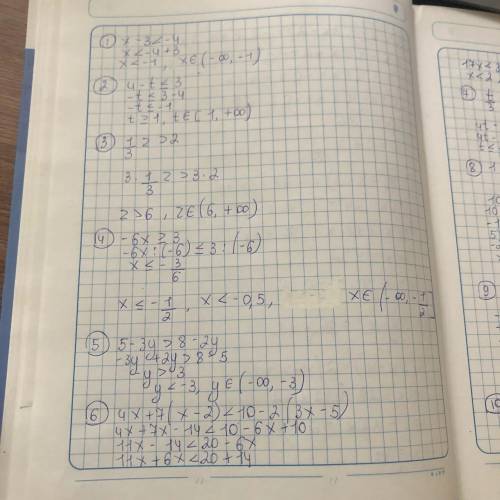 ① x-3<-4
x<-4+3
x<-1, x∈(-∞,-1)
② 4-t≤3
-t≤3-4
-t≤-1
t≥1, t∈[1,+∞)
③ 1/3 z>2
3·1/3 z>3·2
z>6, z∈(6,+∞)
④ -6x≥3
-6x:(-6)≤3:(-6)
x≤-3/6
x≤-1/2, x<-0,5, x∈(-∞,-1/2
⑤ 5-3y>8-2y
-3y+2y>8-5
-y>3
y<-3, y∈(-∞,-3)
⑥ 4x+7(x-2)<10-2(3x-5)
4x+7x-14<10-6x+10
11x-14<20-6x
11x+6x<20+14
17x<3
x<2
⑦
⑧ 1
10
10
5
⑨